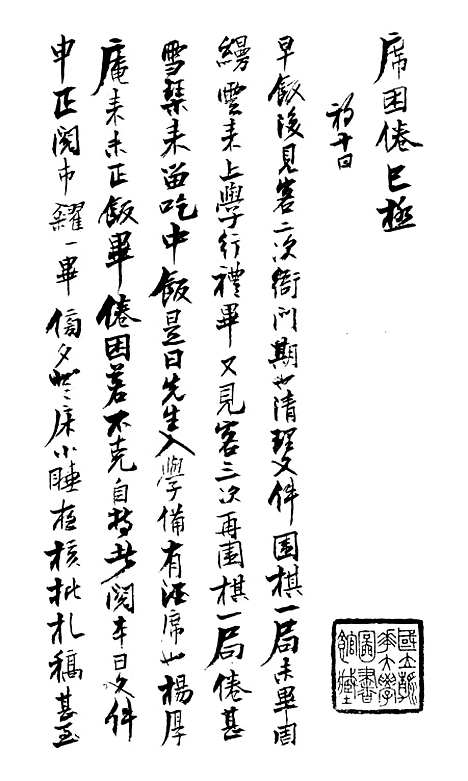 席困倦已極
初十日
早飯後見客二次衙門期也清理文件圍棋一局未畢
縵雲來上學行禮畢又見客三次再圍棋一局倦甚
雪琴來留吃中飯是日先生入學備有酒席也楊厚
庵來未正飯畢倦困若不克自持者閱本日文件
申正閱中畢傍夕登床小睡夜核批札稿甚多
國立清華大學圖書館藏